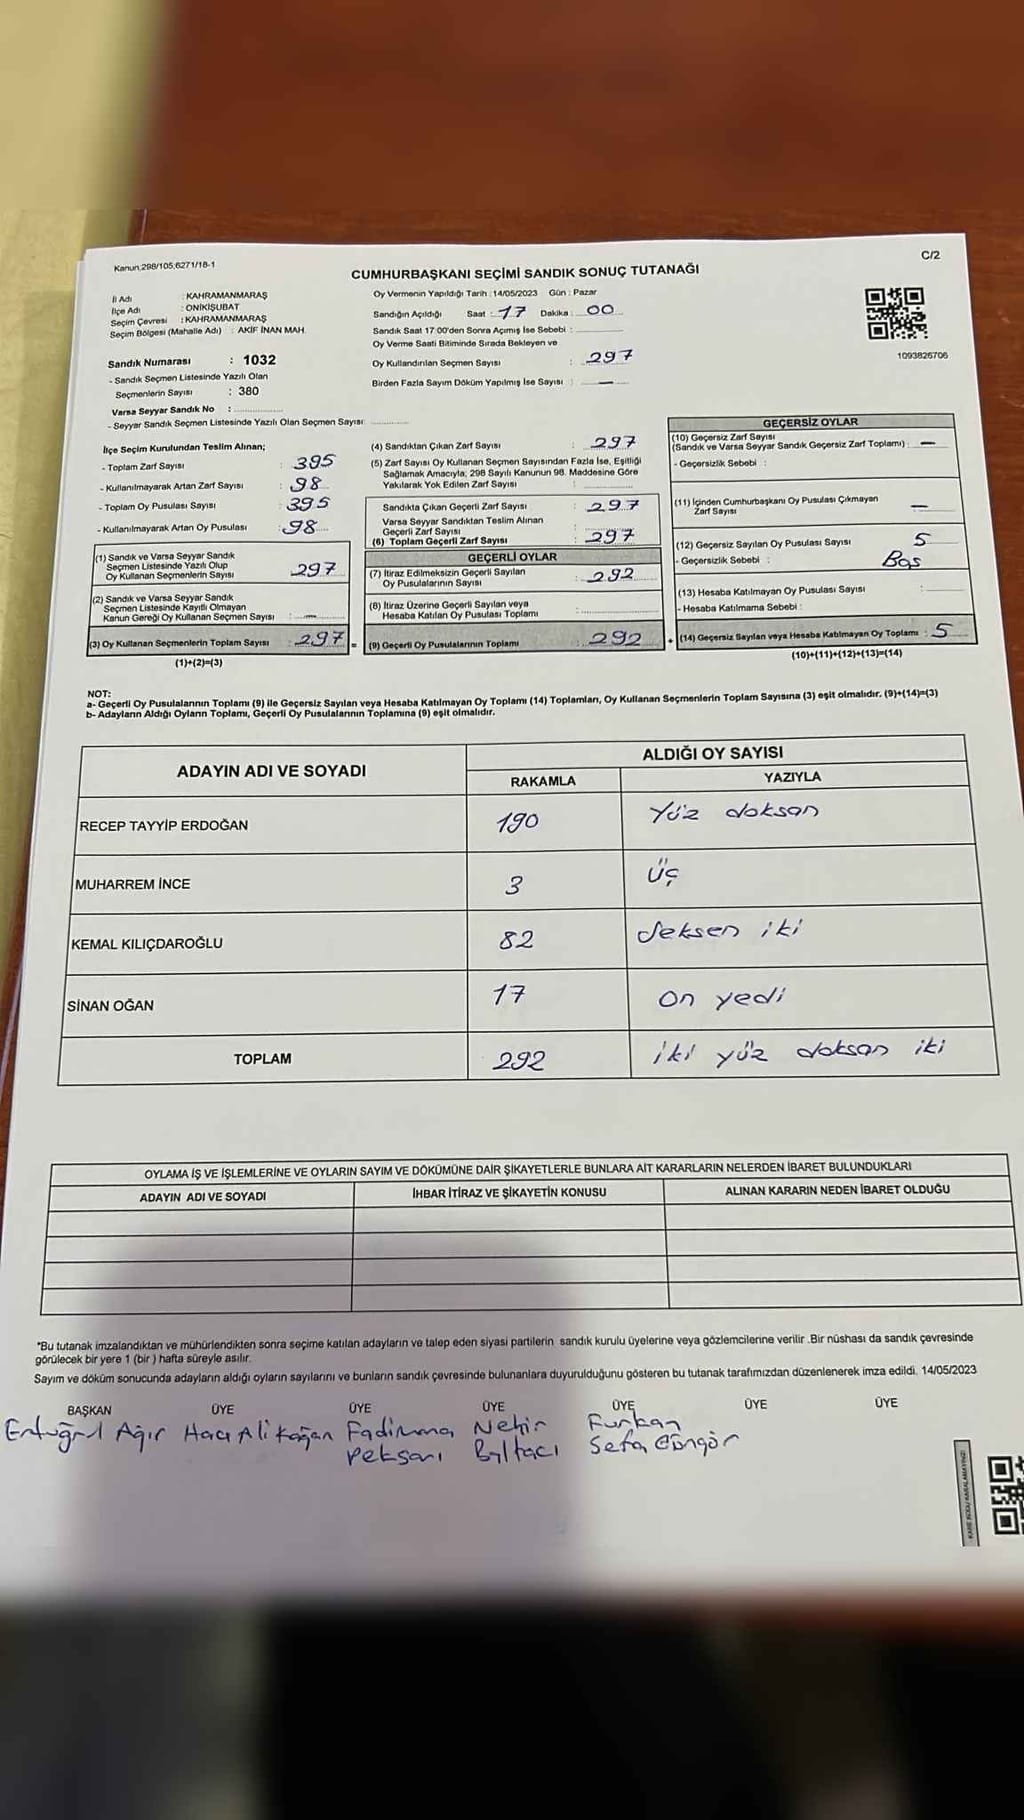 Kanun:298/105;6271/18-1
C/2
CUMHURBAŞKANI SEÇİMİ SANDIK SONUÇ TUTANAĞI
İl Adı : KAHRAMANMARAŞ
İlçe Adı : ONİKİŞUBAT
Seçim Çevresi : KAHRAMANMARAŞ
Seçim Bölgesi (Mahalle Adı) : AKİF İNAN MAH.
Sandık Numarası : 1032
- Sandık Seçmen Listesinde Yazılı Olan
Seçmenlerin Sayısı : 380
Varsa Seyyar Sandık No :
- Seyyar Sandık Seçmen Listesinde Yazılı Olan Seçmen Sayısı:
Oy Vermenin Yapıldığı Tarih : 14/05/2023 Gün : Pazar
Sandığın Açıldığı Saat : 17 Dakika : 00
Sandık Saat 17:00'den Sonra Açımış İse Sebebi :
Oy Verme Saati Bitiminde Sırada Bekleyen ve
Oy Kullandırılan Seçmen Sayısı : 297
Birden Fazla Sayım Döküm Yapılmış İse Sayısı : —
1093826706
İlçe Seçim Kurulundan Teslim Alınan;
- Toplam Zarf Sayısı : 395
- Kullanılmayarak Artan Zarf Sayısı : 98
- Toplam Oy Pusulası Sayısı : 395
- Kullanılmayarak Artan Oy Pusulası : 98
(1) Sandık ve Varsa Seyyar Sandık
Seçmen Listesinde Yazılı Olup
Oy Kullanan Seçmenlerin Sayısı : 297
(2) Sandık ve Varsa Seyyar Sandık
Seçmen Listesinde Kayıtlı Olmayan
Kanun Gereği Oy Kullanan Seçmen Sayısı : —
(3) Oy Kullanan Seçmenlerin Toplam Sayısı : 297 =
(1)+(2)=(3)
(4) Sandıktan Çıkan Zarf Sayısı : 297
(5) Zarf Sayısı Oy Kullanan Seçmen Sayısından Fazla İse, Eşitliği
Sağlamak Amacıyla, 298 Sayılı Kanunun 98. Maddesine Göre
Yakılarak Yok Edilen Zarf Sayısı :
Sandıkta Çıkan Geçerli Zarf Sayısı : 297
Varsa Seyyar Sandıktan Teslim Alınan
Geçerli Zarf Sayısı :
(6) Toplam Geçerli Zarf Sayısı : 297
GEÇERLİ OYLAR
(7) İtiraz Edilmeksizin Geçerli Sayılan
Oy Pusulalarının Sayısı : 292
(8) İtiraz Üzerine Geçerli Sayılan veya
Hesaba Katılan Oy Pusulası Toplamı :
(9) Geçerli Oy Pusulalarının Toplamı : 292 +
GEÇERSİZ OYLAR
(10) Geçersiz Zarf Sayısı
(Sandık ve Varsa Seyyar Sandık Geçersiz Zarf Toplamı) : —
- Geçersizlik Sebebi :
(11) İçinden Cumhurbaşkanı Oy Pusulası Çıkmayan
Zarf Sayısı —
(12) Geçersiz Sayılan Oy Pusulası Sayısı : 5
- Geçersizlik Sebebi : Boş
(13) Hesaba Katılmayan Oy Pusulası Sayısı :
- Hesaba Katılmama Sebebi :
(14) Geçersiz Sayılan veya Hesaba Katılmayan Oy Toplamı : 5
(10)+(11)+(12)+(13)=(14)
NOT:
a- Geçerli Oy Pusulalarının Toplamı (9) ile Geçersiz Sayılan veya Hesaba Katılmayan Oy Toplamı (14) Toplamları, Oy Kullanan Seçmenlerin Toplam Sayısına (3) eşit olmalıdır. (9)+(14)=(3)
b- Adayların Aldığı Oyların Toplamı, Geçerli Oy Pusulalarının Toplamına (9) eşit olmalıdır.
ADAYIN ADI VE SOYADI ALDIĞI OY SAYISI
RAKAMLA YAZIYLA
RECEP TAYYİP ERDOĞAN 190 Yüz doksan
MUHARREM İNCE 3 Üç
KEMAL KILIÇDAROĞLU 82 Seksen iki
SİNAN OĞAN 17 On yedi
TOPLAM 292 iki yüz doksan iki
OYLAMA İŞ VE İŞLEMLERİNE VE OYLARIN SAYIM VE DÖKÜMÜNE DAİR ŞİKAYETLERLE BUNLARA AİT KARARLARIN NELERDEN İBARET BULUNDUKLARI
ADAYIN ADI VE SOYADI İHBAR İTİRAZ VE ŞİKAYETİN KONUSU ALINAN KARARIN NEDEN İBARET OLDUĞU
*Bu tutanak imzalandıktan ve mühürlendikten sonra seçime katılan adayların ve talep eden siyasi partilerin sandık kurulu üyelerine veya gözlemcilerine verilir .Bir nüshası da sandık çevresinde
görülecek bir yere 1 (bir ) hafta süreyle asılır.
Sayım ve döküm sonucunda adayların aldığı oyların sayılarını ve bunların sandık çevresinde bulunanlara duyurulduğunu gösteren bu tutanak tarafımızdan düzenlenerek imza edildi. 14/05/2023
BAŞKAN ÜYE ÜYE ÜYE ÜYE ÜYE ÜYE
Ertuğrul Ağır Hacı Ali Kağan Fadimma Nehir Furkan
Pekşanı Baltacı Sefa Güngör
KARE KODU KARALAMAYINIZ!